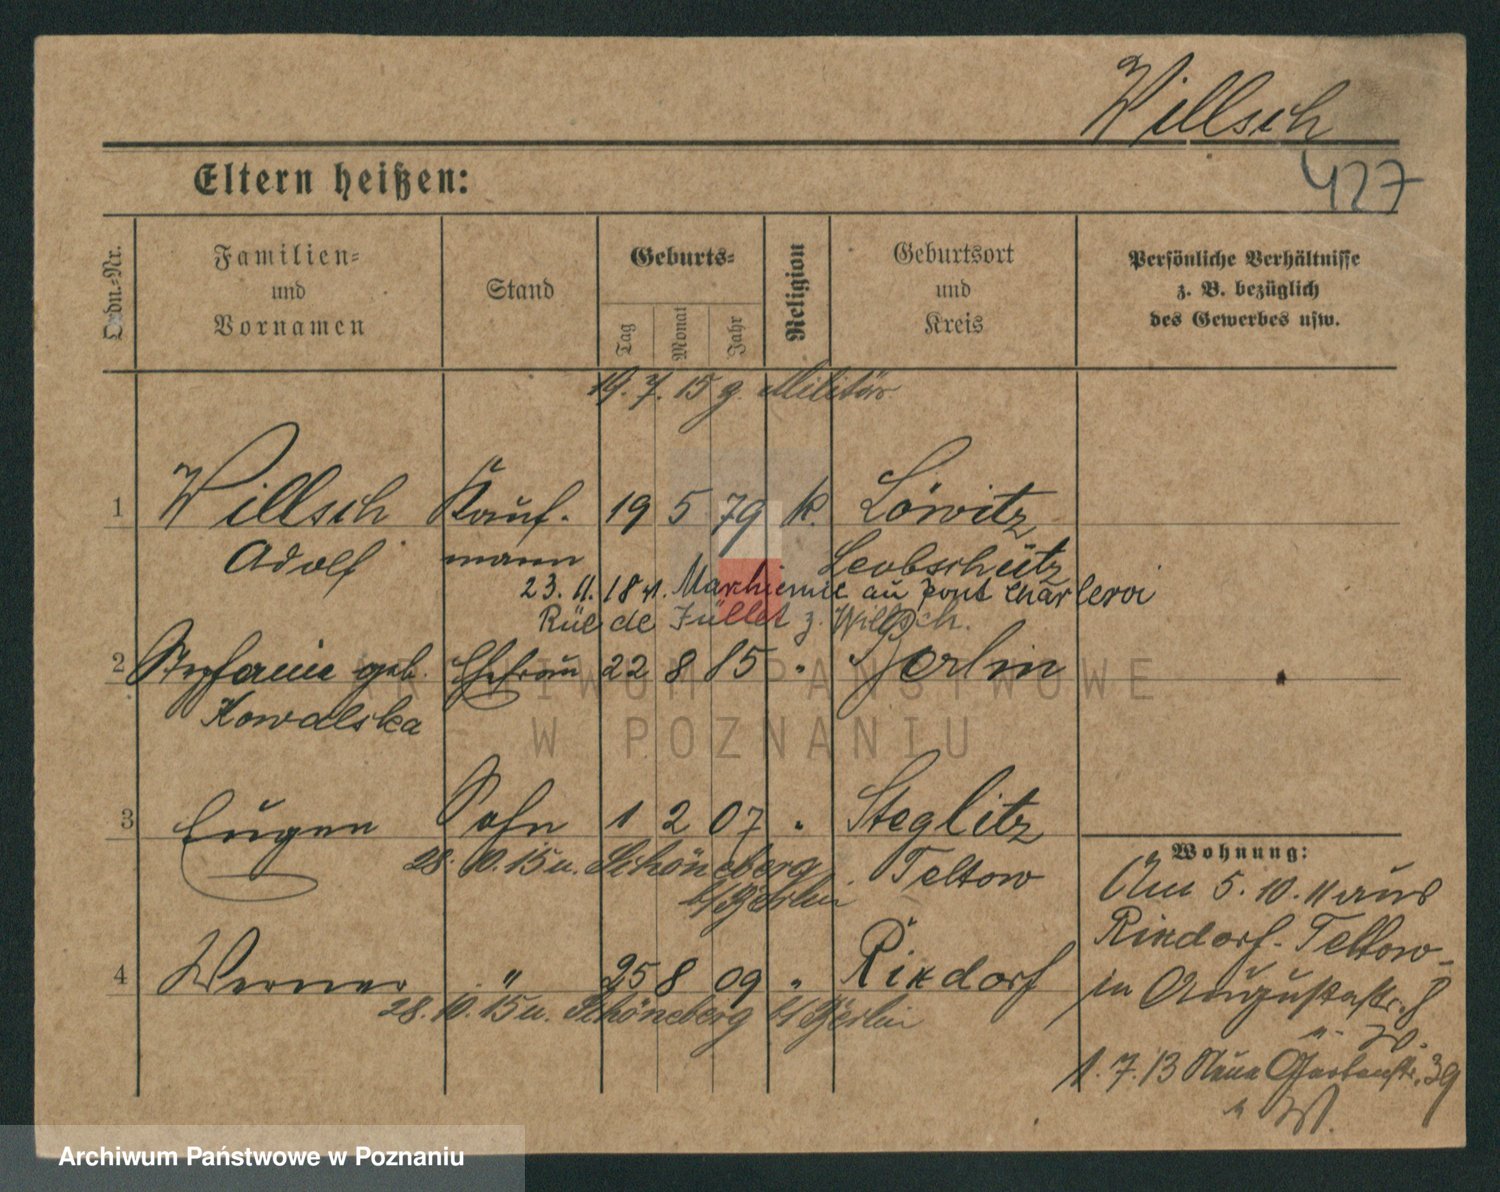 Willsch
427
Eltern heißen:
Ordn.-Nr.
Familien- und Vornamen
Stand
Geburts-
Tag
Monat
Jahr
Religion
Geburtsort und Kreis
Persönliche Verhältnisse
z. B. bezüglich
des Gewerbes usw.
19. 7. 15 z. Militär
1 Willsch Kauf- 19 5 79 k. Löwitz
Adolf mann Leobschütz
23. 11. 18 n. Marchienne au pont Charleroi
Rüe de Füllet z. Willsch.
2 Stefanie geb. Ehefrau 22 8 85 " Berlin
Kowalska
3 Eugen Sohn 1 2 07 " Steglitz
Teltow
28. 10. 15 n. Schöneberg
b/Berlin
4 Werner " 25 8 09 " Rixdorf
28. 10. 15 n. Schöneberg b/Berlin
Wohnung:
Am 5. 10. 11 aus
Rixdorf-Teltow-
in Augustastr. 8
1. 7. 13 Neue Gartenstr. 39
ARCHIWUM PAŃSTWOWE
W POZNANIU
Archiwum Państwowe w Poznaniu